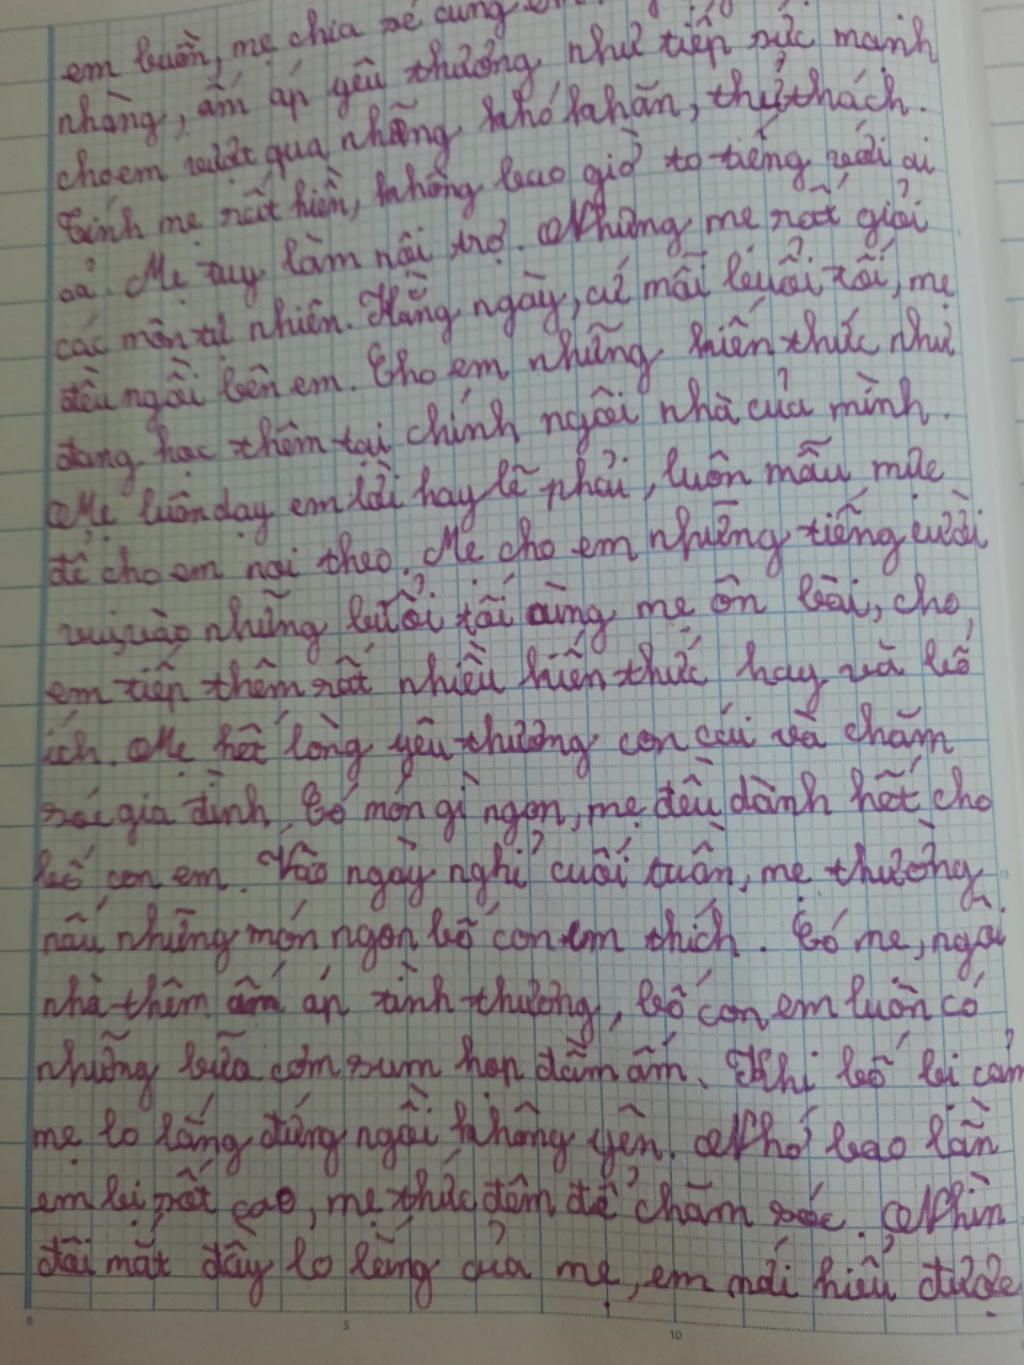 em buồn, mẹ chia sẻ cùng em
nhàng, ấm áp yêu thương như tiếp sức mạnh
cho em vượt qua những khó khăn, thử thách.
Tính mẹ rất hiền, không bao giờ to tiếng với ai
cả. Mẹ tuy làm nội trợ. Nhưng mẹ rất giỏi
các môn tự nhiên. Hằng ngày, cứ mỗi buổi tối, mẹ
đều ngồi bên em. Cho em những kiến thức như
đang học thêm tại chính ngôi nhà của mình.
Mẹ luôn dạy em lời hay lẽ phải, luôn mẫu mực
để cho em noi theo. Mẹ cho em những tiếng cười
vui, vào những buổi tối cùng mẹ ôn bài, cho
em tiếp thêm rất nhiều kiến thức hay và bổ
ích. Mẹ hết lòng yêu thương con cái và chăm
sóc gia đình. Có món gì ngon, mẹ đều dành hết cho
bố con em. Vào ngày nghỉ cuối tuần, mẹ thường
nấu những món ngon bố con em thích. Có mẹ, ngôi
nhà thêm ấm áp tình thương, bố con em luôn có
những bữa cơm sum họp đầm ấm. Khi bố bị cảm
mẹ lo lắng đứng ngồi không yên. Nhớ bao lần
em bị sốt cao, mẹ thức đêm để chăm sóc. Nhìn
đôi mắt đầy lo lắng của mẹ, em mới hiểu được
0 5 10